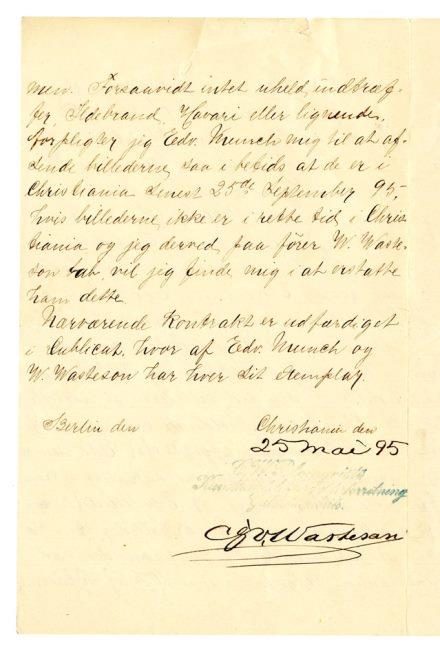 men. Forsaavidt intet uheld, indtræf-
fer Ildebrand, Havari eller lignende,
forpligter jeg Edv. Munch mig til at af-
sende billederne, saa i betids, at de er i
Christiania senest 25de September 95,
hvis billederne, ikke er i rette tid i Chris
tiania og jeg derved, paa fører W. Waste-
son tab, vil jeg finde mig i at erstatte
ham dette
Nærværende Kontrakt er udfærdiget
i Dublicat, hvor af Edv. Munch og
W. Wasteson har hver sit exemplar.
Berlin den Christiania den
25 Mai 95
Wasteson